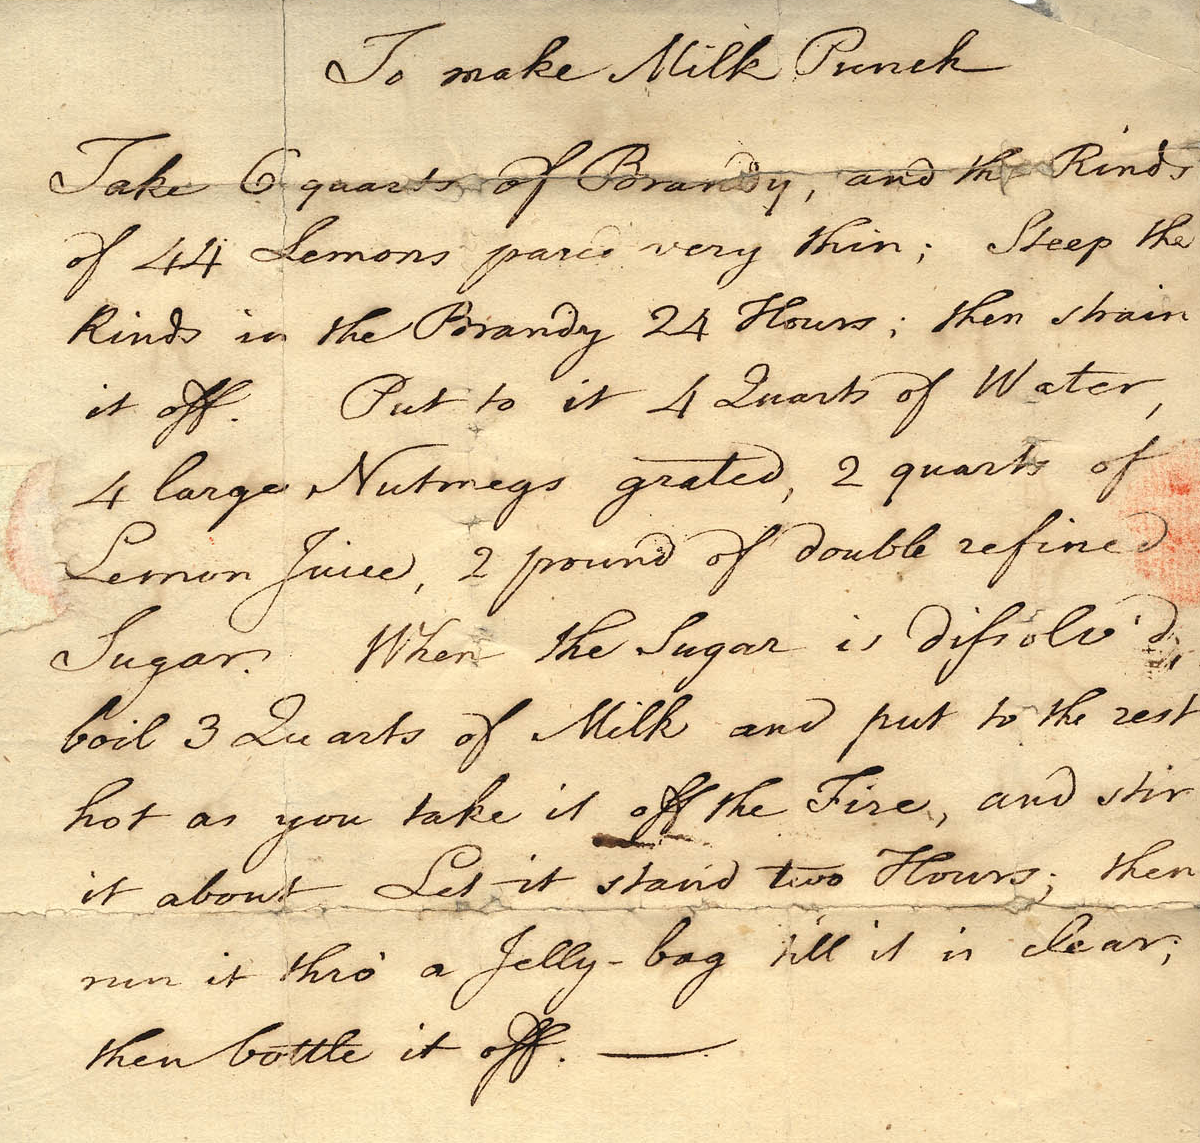 To make Milk Punch
Take 6 quarts of Brandy, and the Rinds
of 44 Lemons pared very thin; Steep the
Rinds in the Brandy 24 Hours; then strain
it off. Put to it 4 Quarts of Water,
4 large Nutmegs grated, 2 quarts of
Lemon Juice, 2 pound of double refined
Sugar. When the Sugar is diſsolv'd,
boil 3 Quarts of Milk and put to the rest
hot as you take it off the Fire, and stir
it about. Let it stand two Hours; then
run it thro' a Jelly-bag till it is clear;
then bottle it off. —